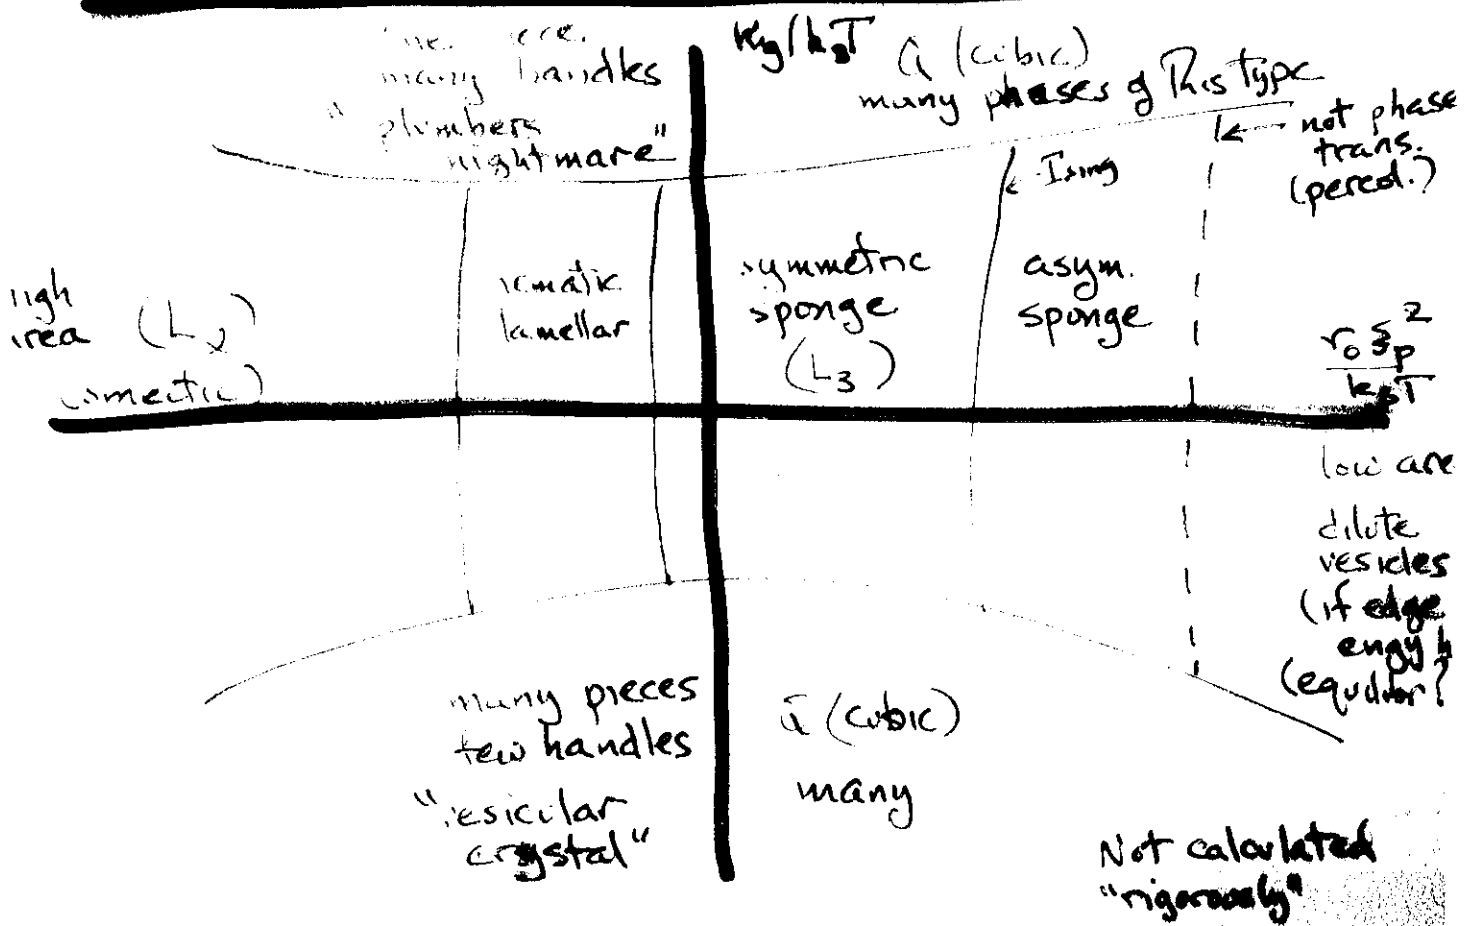 many handles
"plumbers
nightmare"
Kg/k_BT
Q (cubic)
many phases of this type
not phase
trans.
(percol.?)
Ising
high
area
(L
(smectic)
nematic
lamellar
symmetric
sponge
(L₃)
asym.
sponge
r₀ξ_p²
k_BT
low are
dilute
vesicles
(if edge
engy h
(equilibr?
many pieces
few handles
"vesicular
crystal"
Q (cubic)
many
Not calculated
"rigorously"